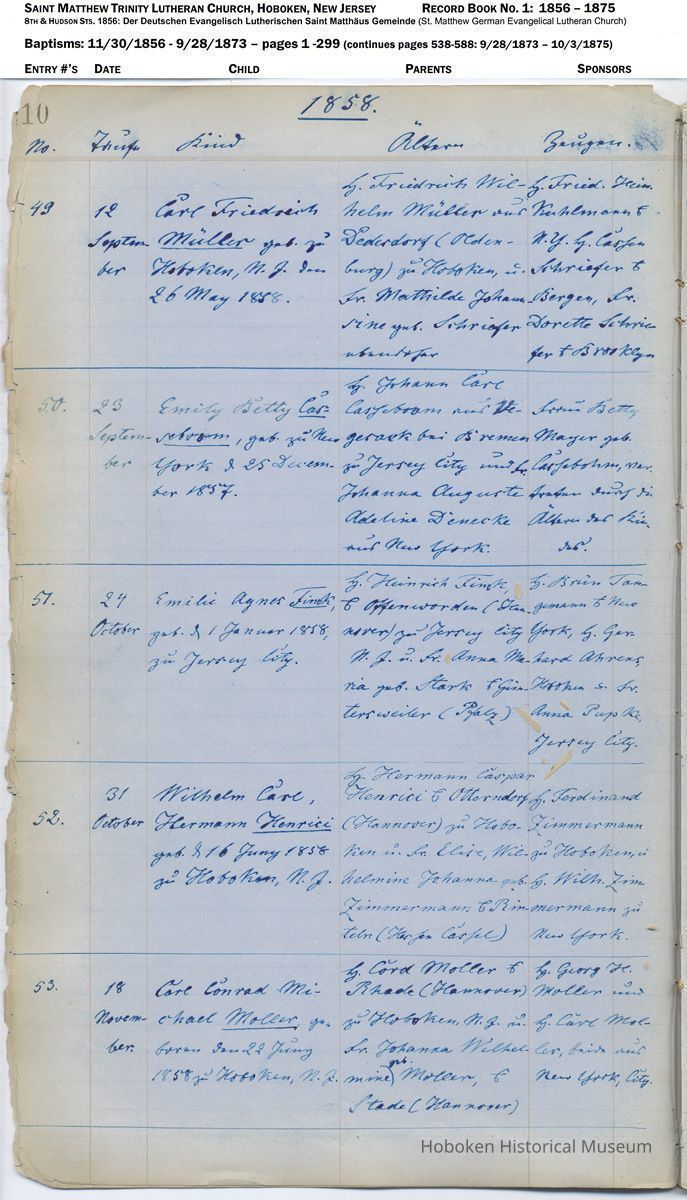 SAINT MATTHEW TRINITY LUTHERAN CHURCH, HOBOKEN, NEW JERSEY RECORD BOOK NO. 1: 1856 – 1875
8TH & HUDSON STS. 1856: DER DEUTSCHEN EVANGELISCH LUTHERISCHEN SAINT MATTHÄUS GEMEINDE (ST. MATTHEW GERMAN EVANGELICAL LUTHERAN CHURCH)
Baptisms: 11/30/1856 - 9/28/1873 – pages 1 -299 (continues pages 538-588: 9/28/1873 – 10/3/1875)
ENTRY #'S DATE CHILD PARENTS SPONSORS
10
1858.
No. Taufe Kind Ältern Zeugen.
49
12
Septem-
ber
Carl Friedrich
Müller geb. zu
Hoboken, N. J. den
26 May 1858.
H. Friedrich Wil-
helm Müller aus
Dedesdorf (Olden-
burg) zu Hoboken, u.
Fr. Mathilde Johan-
sine geb. Schriefer
ebendaher
H. Fried. Hein.
Kuhlmann
N.Y. H. Cassen
Schriefer
Bergen, Fr.
Dorette Schrie-
fer Brooklyn
50.
23
Septem-
ber
Emily Betty Cas-
seboom, geb. zu New
York d 25 Decem-
ber 1857.
H. Johann Carl
Casseboom aus Ve-
gesack bei Bremen
zu Jersey City und Fr.
Johanna Auguste
Adeline Denecke
aus New York.
Frau Betty
Mayer geb.
Cassebohm, ver-
treten durch die
Ältern des Kin-
des.
51.
24
October
Emilie Agnes Finck,
geb. d 1 Januar 1858,
zu Jersey City.
H. Heinrich Finck
Offenworden (Han-
nover) zu Jersey City
N. J. u. Fr. Anna Ma-
ria geb. Stark
tersweiler (Pfalz)
H. Brün Tan-
gemann New
York, H. Ger-
hard Ahrens
Hoboken & Fr.
Anna Pupke,
Jersey City.
52.
31
October
Wilhelm Carl,
Hermann Henrici
geb. d 16 Juny 1858
zu Hoboken, N. J.
H. Hermann Caspar
Henrici Otterndorf
(Hannover) zu Hobo-
ken u. Fr. Elise, Wil-
helmine Johanna geb.
Zimmermann Rin-
teln (Hessen Cassel)
H. Ferdinand
Zimmermann
zu Hoboken, u
H. Wilh. Zim-
mermann zu
New York.
53.
18
Novem-
ber.
Carl Conrad Mi-
chael Moller, ge-
boren den 22 Juny
1858 zu Hoboken, N. J.
H. Cord Moller
Rhade (Hannover)
zu Hoboken, N. J. u.
Fr. Johanna Wilhel-
mine geb. Moller,
Stade (Hannover)
H. Georg H.
Moller und
H. Carl Mol-
ler, beide aus
New York, City.
Hoboken Historical Museum